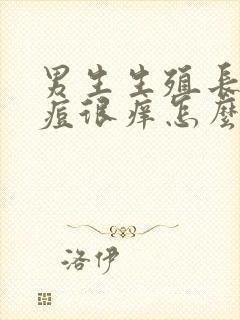 男生生殖長
痘很痒怎麼
洛伊